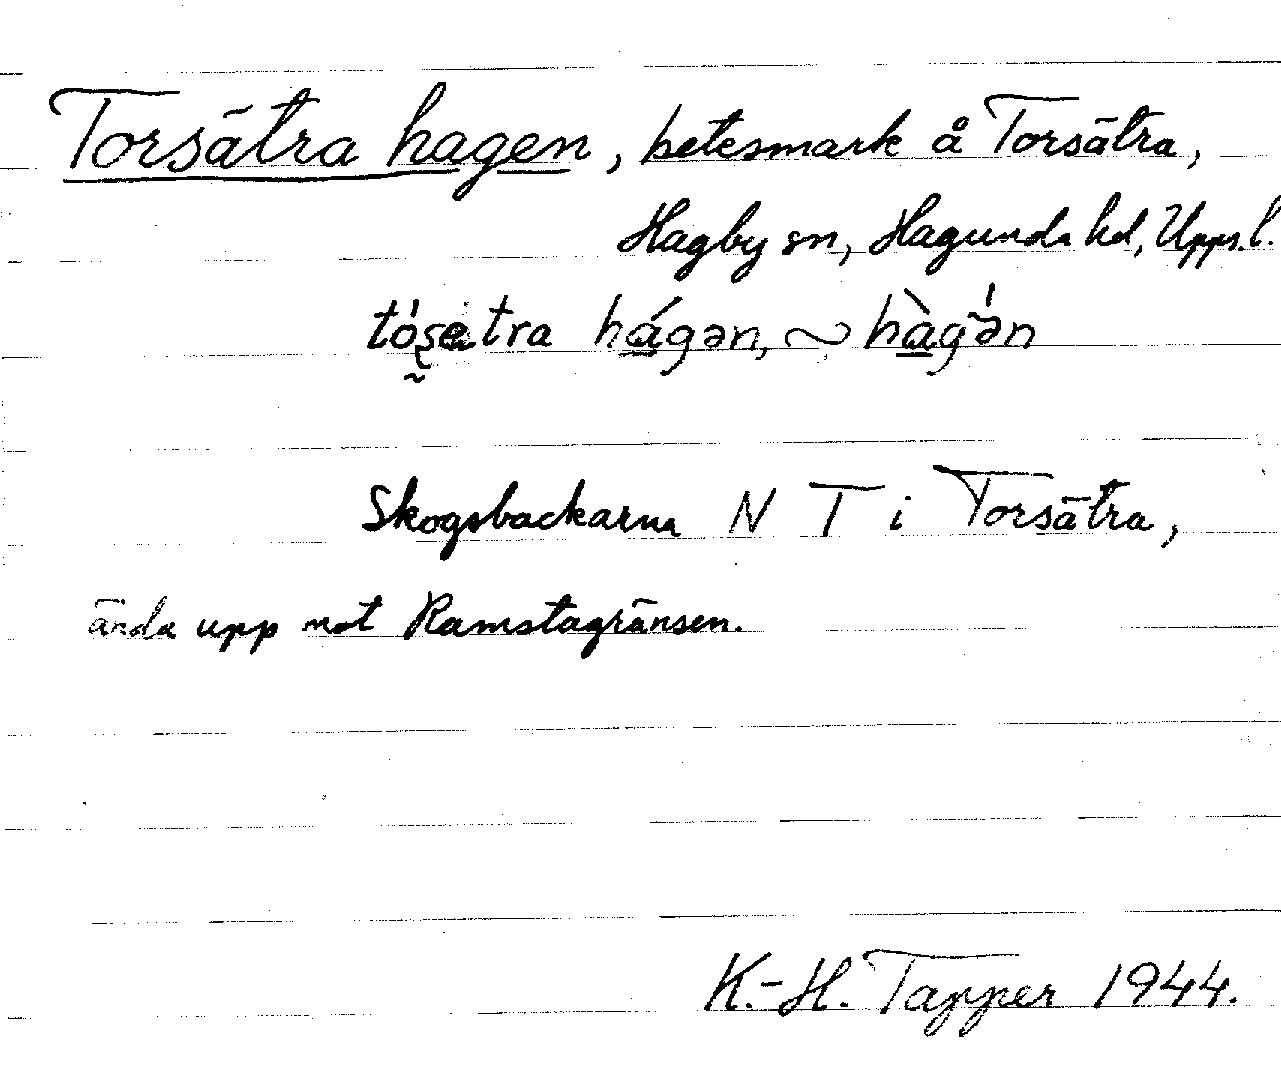 Torsätra hagen, betesmark å Torsätra,
Hagby sn, Hagunda hd, Uppl.
tó̀șetra hágən, ~ hàgə́n
Skogsbackarna N T i Torsätra,
ända upp mot Ramstagränsen.
K.-H. Tapper 1944.